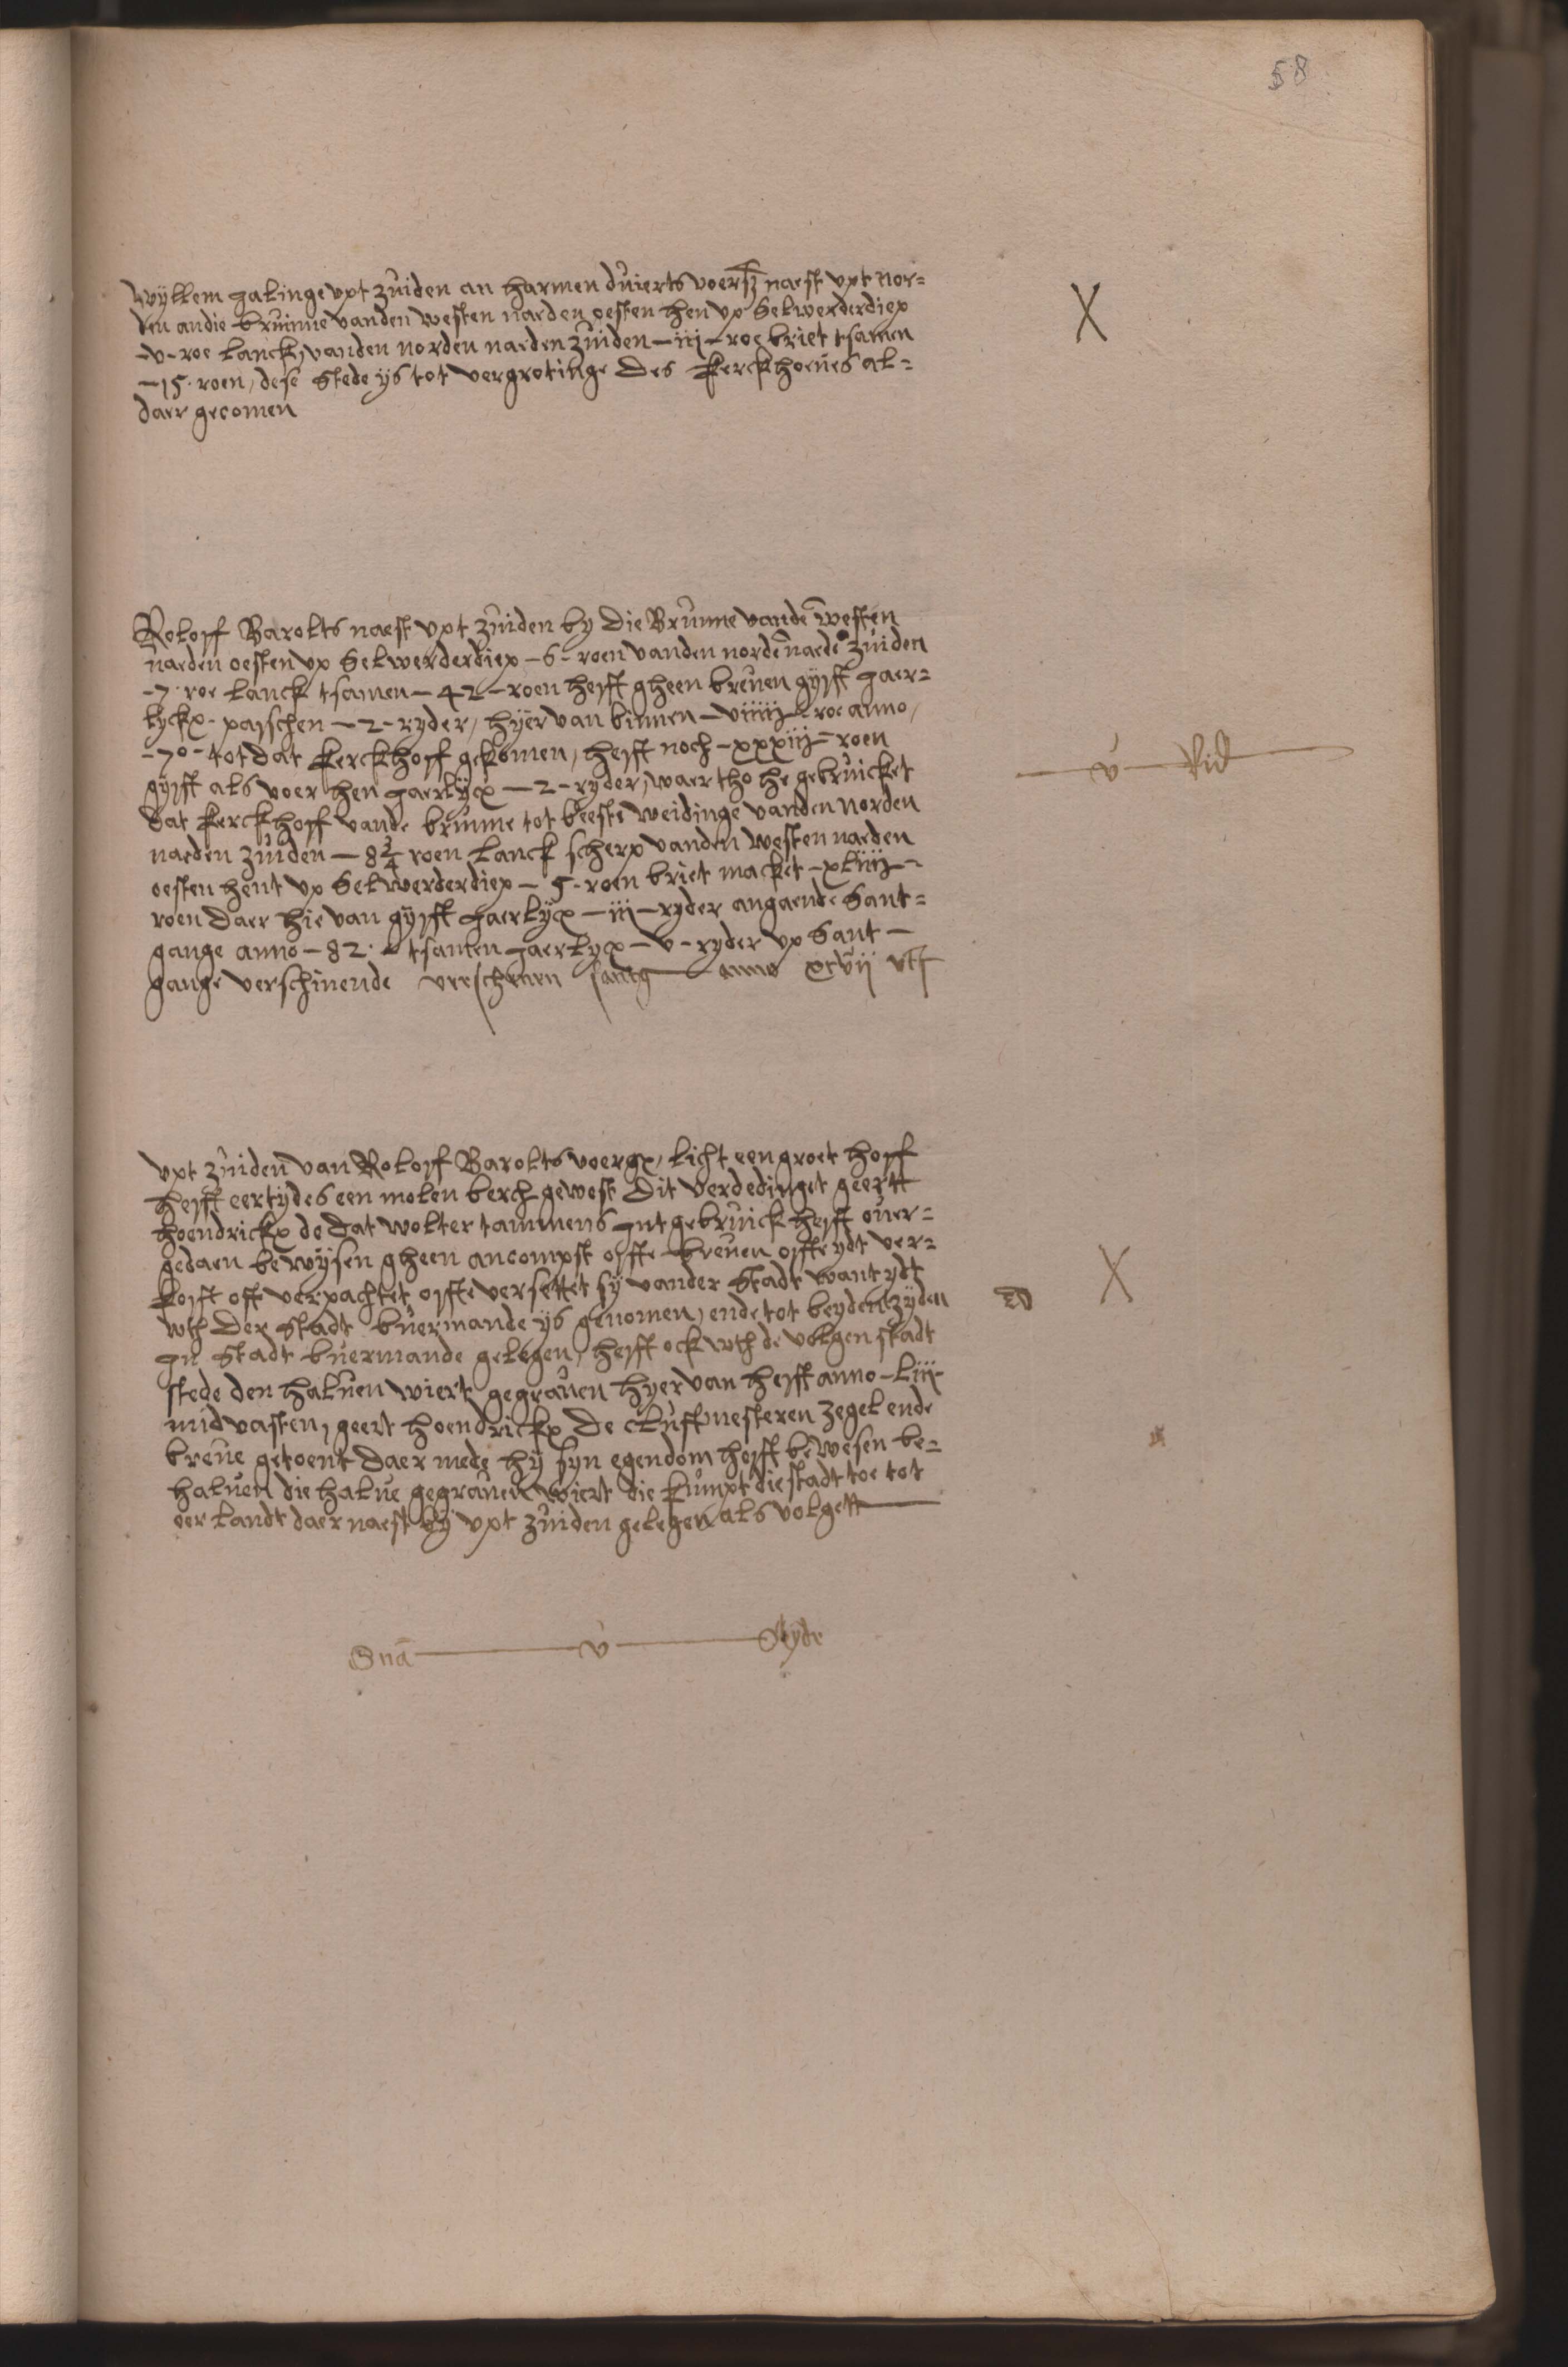 58
Wyllem Jalinge vpt zuiden an Harmen duierts voers naest vpt nor=
den an die bruinne vanden westen naeden oesten hen vp Selwerderdiep
-v- roe lanck, vanden norden naeden zuiden - iij - roe briet tsamen
- 15 - roen, dese stede ys tot vergrotinge des kerckhoeues al=
daer gecomen
X
Roloff Barolts naest vpt zuiden by die Brunne vande westen
naeden oesten vp Selwerderdiep - 6 - roen vanden norde naede zuiden
- 7 - roe lanck tsamen - 42 - roen heft gheen breuen gyft Jaer=
lyckx paschen - 2 - ryder, hyer van binnen - viiij - roe anno,
- 70 - tot dat kerckhoff gekomen, heft noch - xxxiij - roen
gyft als voer hen Jaerlycx - 2 - ryder, waer tho he gebruicket
dat kerckhoff vande brunne tot beeste weidinge vanden norden
naeden zuiden - 8 3/4 roen lanck scherp vanden westen naeden
oesten hent vp Selwerderdiep - 5 - roen briet macket - xliiij -
roen daer hie van gyft Jaerlycx - iij - ryder angaende Sant=
gange anno - 82 - tsamen Jaerlycx - v - ryder vp Sant -
gange verschinende verschenen santg anno xcvij vts
- v - Rid
vpt zuiden van Roloff Barolts voergx, licht een groet hoff
heft eertydes een molen berch gewest Dit verdedinget geertt
hoendrickx de dat wolter tammens Int gebruick heft ouer=
gedaen bewysen gheen ancompst offte breuen offte ydt ver=
koft oft verpachtet offte versettet sy vander Stadt want ydt
wth der stadt buermande ys genomen, ende tot beyden zyden
In Stadt buermande gelegen, heft ock wth de volgen stadt
stede den haluen wiert gegrauen hyer van heft anno - liij -
mid vasten, geert hoendrickx de cluftmesteren zegel ende
breue getoent daer mede hy syn egendom heft bewesen be=
haluen die halue gegrauen wiert die kumpt die stadt toe tot
oer landt daer naest by vpt zuiden gelegen als volgett
X
Sua - v - Ryde